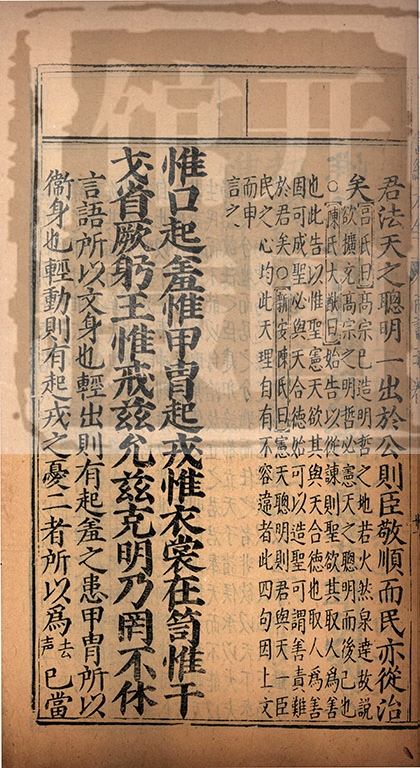 君法天之聰明一出於公則臣敬順而民亦從治
矣
呂氏曰高宗已造明哲之地若火然泉達故說
欲擴充高宗之明哲必憲天之聰明而後已也
○陳氏大猷曰始告以從諫則聖欲其取人爲善
也此告以惟聖憲天欲其與天合德也取人爲善
因可成聖必與天合德始可以造聖可謂善責難
於君矣○新安陳氏曰憲天聰明則君與天一臣
民之心均此天理自有不容違者此四句因上文
而申
言之
惟口起羞惟甲冑起戎惟衣裳在笥惟干
戈省厥躬王惟戒兹允兹克明乃罔不休
言語所以文身也輕出則有起羞之患甲冑所以
衞身也輕動則有起戎之憂二者所以爲去声己當